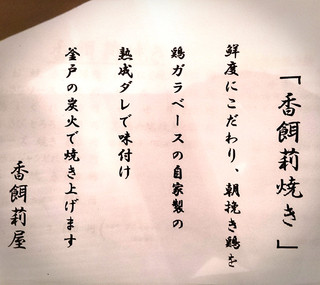 「香餌莉焼き」
鮮度にこだわり、朝挽き鶏を
鶏ガラベースの自家製の
熟成ダレで味付け
釜戸の炭火で焼き上げます
香餌莉屋